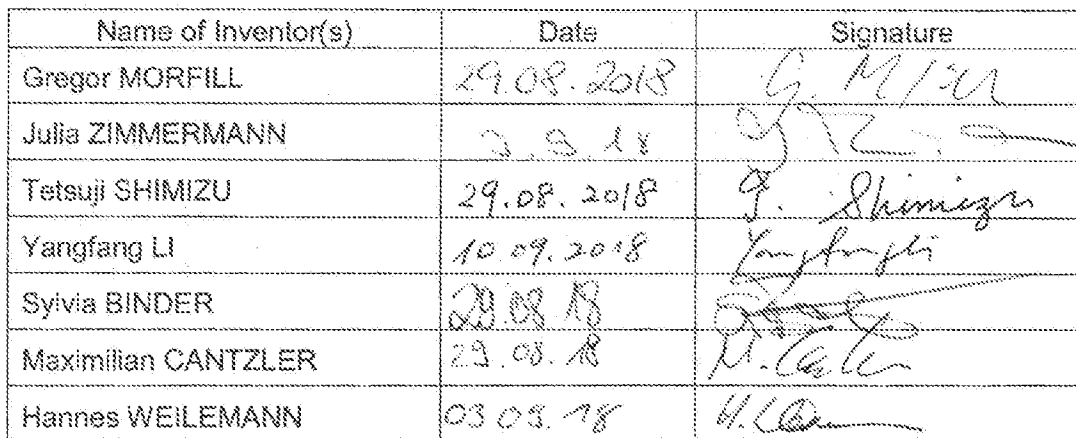 Name of Inventor(s) Date Signature
Gregor MORFILL 29.08.2018
Julia ZIMMERMANN
Tetsuji SHIMIZU 29.08.2018 T. Shimizu
Yangfang LI 10.09.2018 Yangfang Li
Sylvia BINDER 29.08.18
Maximilian CANTZLER 29.08.18
Hannes WEILEMANN 03.09.18